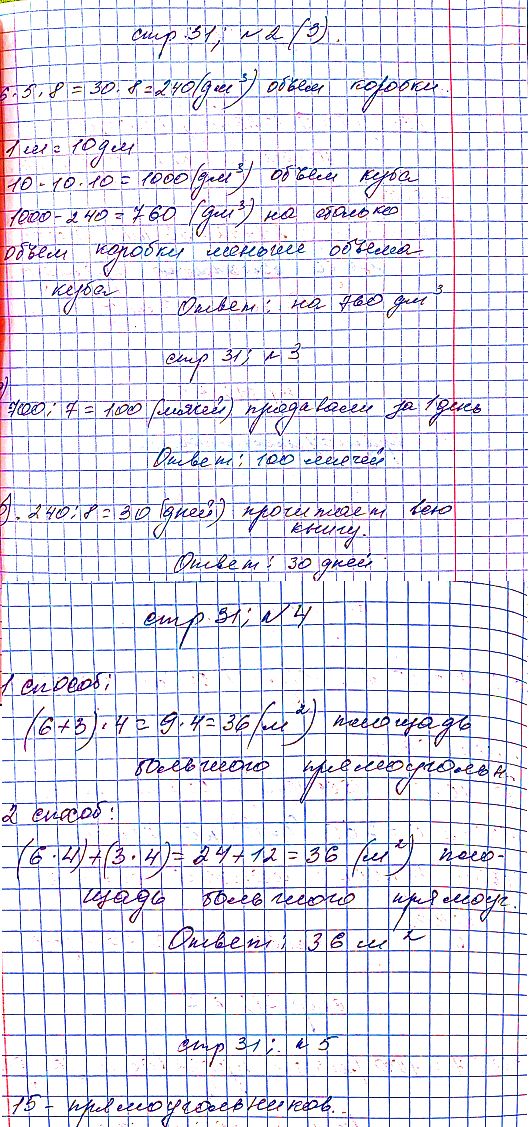 стр 31; №2 (3).
6·5·8 = 30·8 = 240 (дм³) объем коробки.
1 м = 10 дм
10·10·10 = 1000 (дм³) объем куба
1000 - 240 = 760 (дм³) на столько
объем коробки меньше объема
куба
Ответ: на 760 дм³
стр 31; №3
а)
700 : 7 = 100 (мячей) продавали за 1 день
Ответ: 100 мячей.
б). 240 : 8 = 30 (дней) прочитает всю
книгу.
Ответ: 30 дней.
стр 31; №4
1 способ:
(6+3)·4 = 9·4 = 36 (м²) площадь
большого прямоугольн.
2 способ:
(6·4)+(3·4) = 24+12 = 36 (м²) пло-
щадь большого прямоуг.
Ответ: 36 м²
стр 31; №5
15 - прямоугольников.